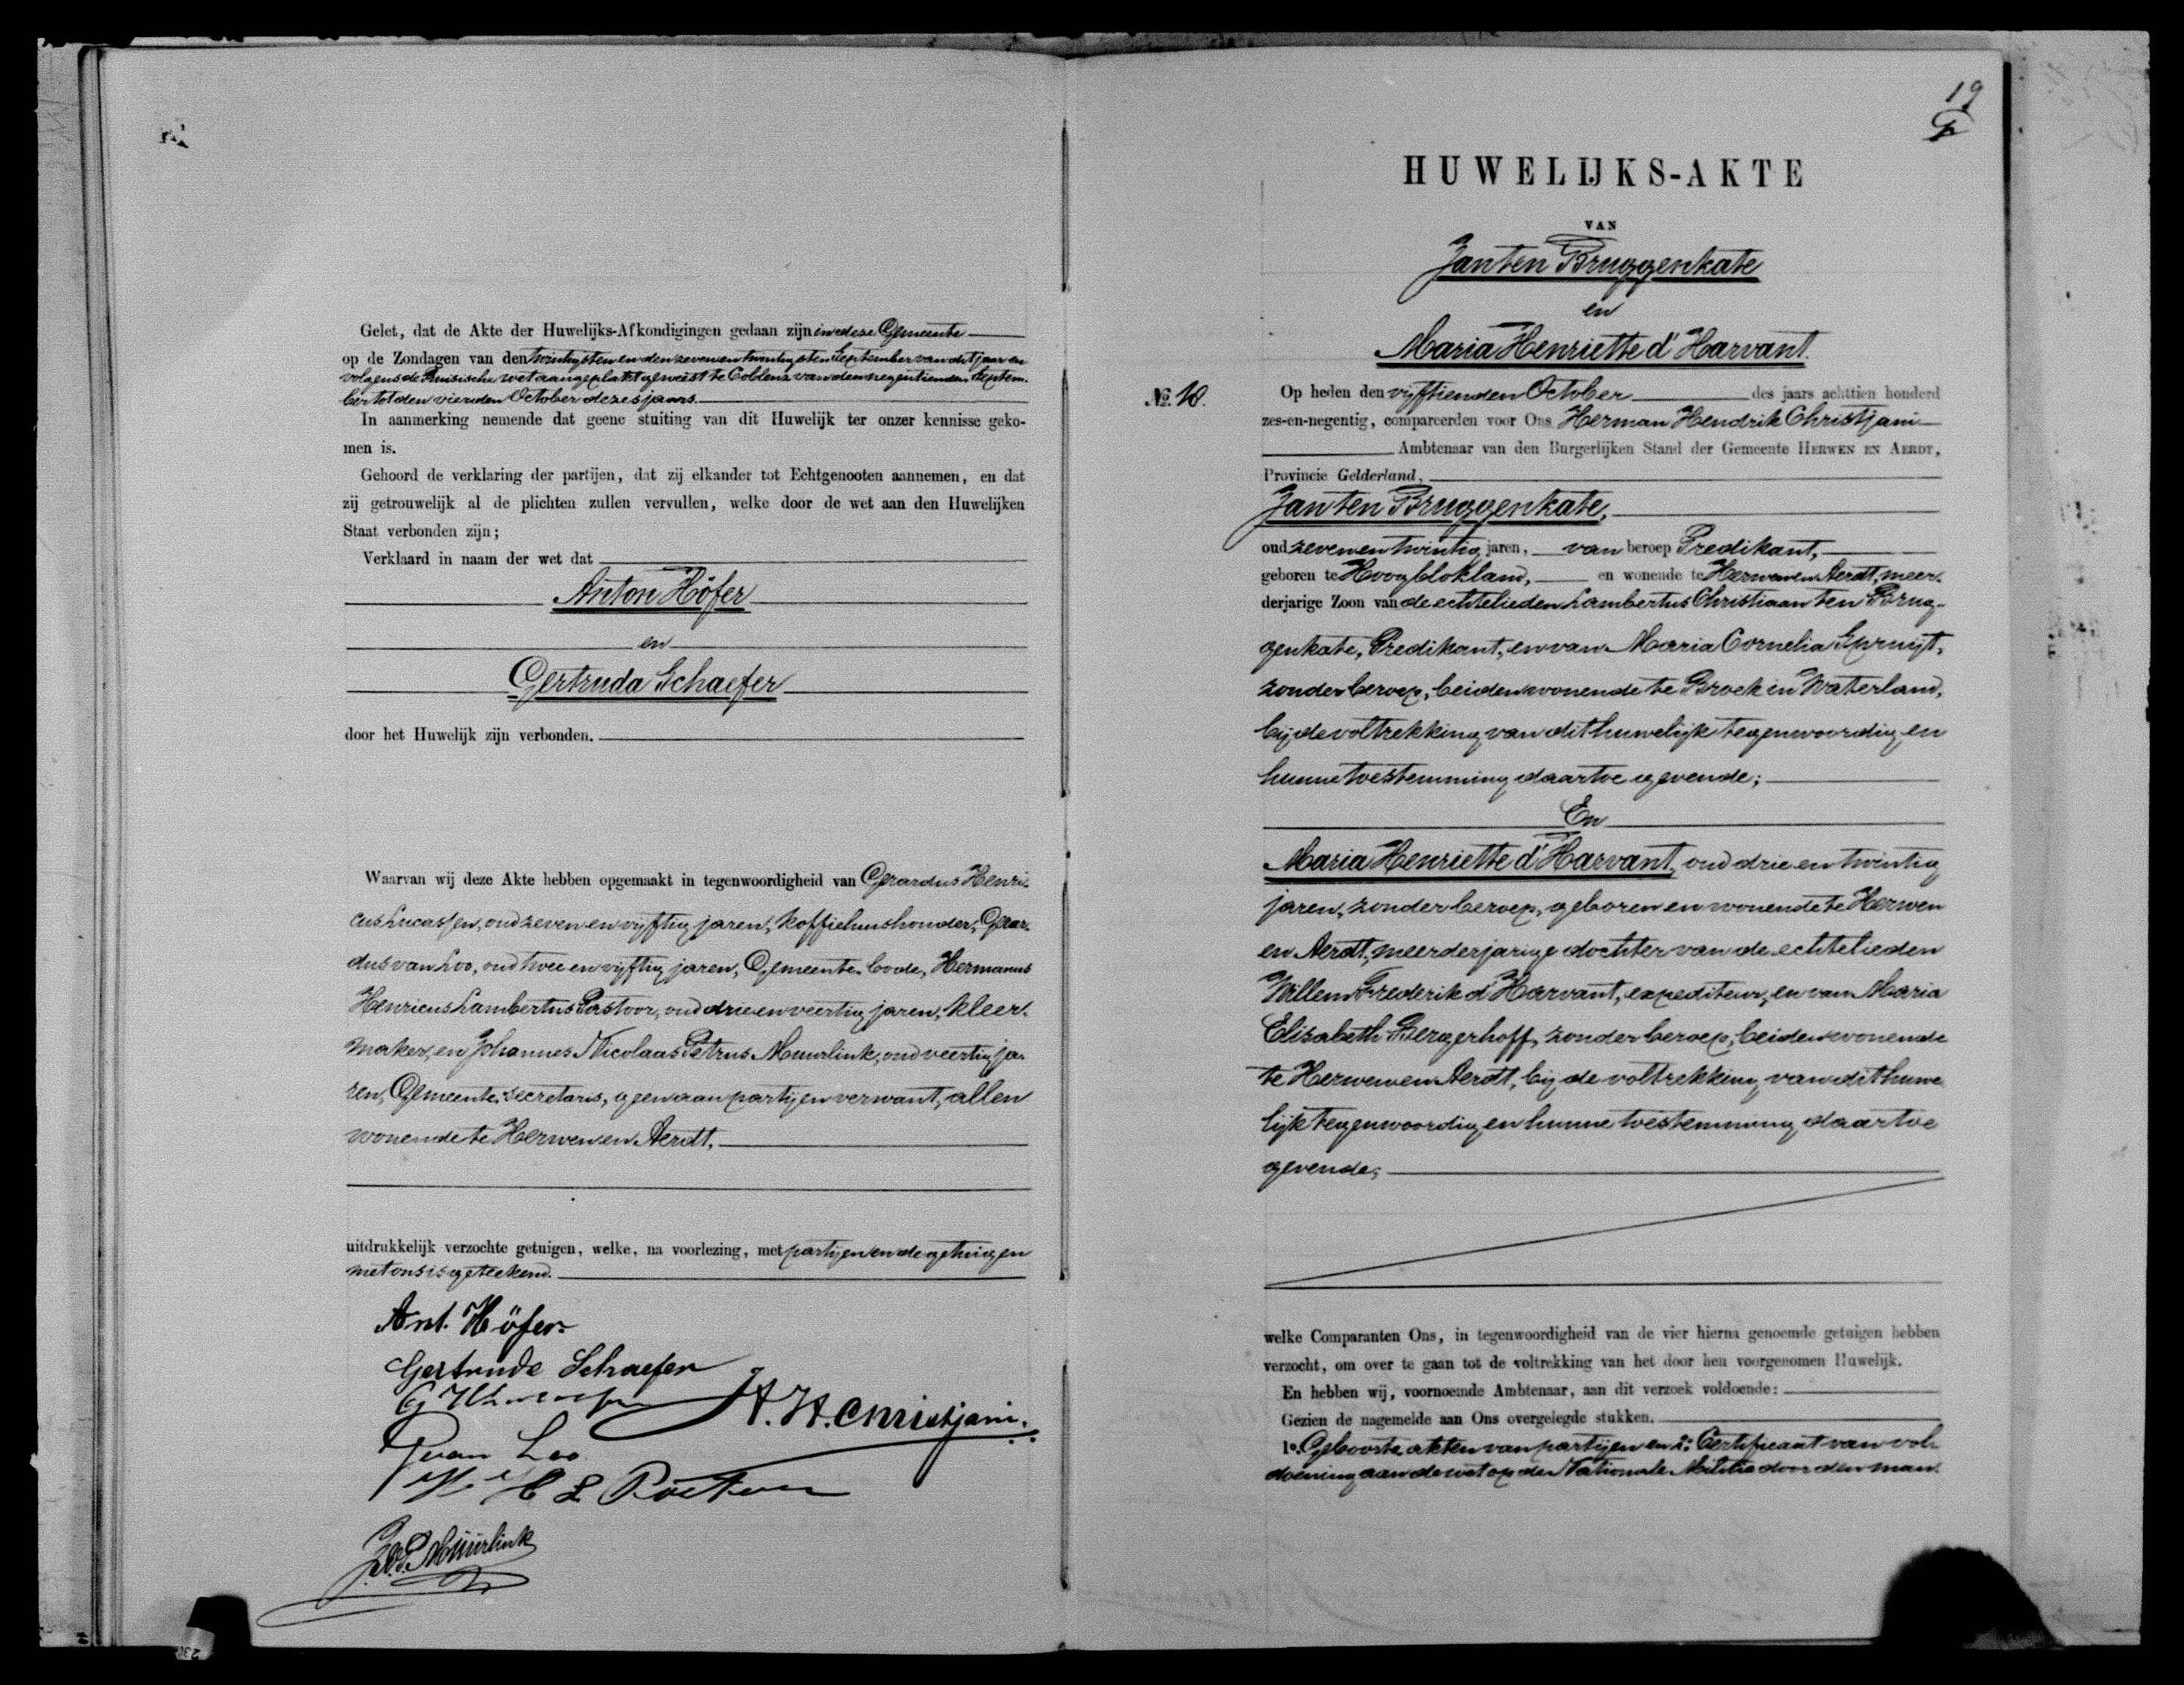 Gelet, dat de Akte der Huwelijks-Afkondigingen gedaan zijn in deze Gemeente
op de Zondagen van den twintigsten en den zevenentwintigsten September van dit jaar en
volgens de Pruisische wet aangeplakt geweest te Coblenz van den negentienden Septem-
ber tot den vierden October dezes jaars.
In aanmerking nemende dat geene stuiting van dit Huwelijk ter onzer kennisse geko-
men is.
Gehoord de verklaring der partijen, dat zij elkander tot Echtgenooten aannemen, en dat
zij getrouwelijk al de plichten zullen vervullen, welke door de wet aan den Huwelijken
Staat verbonden zijn;
Verklaard in naam der wet dat
Anton Höfer
en
Gertruda Schaefer
door het Huwelijk zijn verbonden.
Waarvan wij deze Akte hebben opgemaakt in tegenwoordigheid van Gerardus Henri-
cus Lucassen, oud zeven en vijftig jaren, koffiehuishouder, Gerar-
dus van Loo, oud twee en vijftig jaren, Gemeente-bode, Hermanus
Henricus Lambertus Pastoor, oud drie en veertig jaren, kleer-
maker, en Johannes Nicolaas Petrus Muurlink, oud veertig ja-
ren, Gemeente-secretaris, geen aan partijen verwant, allen
wonende te Herwen en Aerdt,
uitdrukkelijk verzochte getuigen, welke, na voorlezing, met partijen en de getuigen
met ons is geteekend.
Ant. Höfer
Gertrude Schaefer
H. H. Christjani.
G van Loo
H H L Pastoor
J.N.P. Muurlink
19
HUWELIJKS-AKTE
VAN
Jan ten Bruggenkate
en
Maria Henriette d'Harvant.
No. 18.
Op heden den vijftienden October des jaars achttien honderd
zes-en-negentig, compareerden voor Ons Herman Hendrik Christjani
Ambtenaar van den Burgerlijken Stand der Gemeente HERWEN EN AERDT,
Provincie Gelderland,
Jan ten Bruggenkate,
oud zevenentwintig jaren, van beroep Predikant,
geboren te Hoogblokland, en wonende te Herwen en Aerdt, meer-
derjarige Zoon van de echtelieden Lambertus Christiaan ten Brug-
genkate, Predikant, en van Maria Cornelia Spruijt,
zonder beroep, beiden wonende te Broek in Waterland,
bij de voltrekking van dit huwelijk tegenwoordig en
hunne toestemming daartoe gevende;
En
Maria Henriette d'Harvant, oud drie en twintig
jaren, zonder beroep, geboren en wonende te Herwen
en Aerdt, meerderjarige dochter van de echtelieden
Willem Frederik d'Harvant, expediteur, en van Maria
Elisabeth Bergerhoff, zonder beroep, beiden wonende
te Herwen en Aerdt, bij de voltrekking van dit huwe
lijk tegenwoordig en hunne toestemming daartoe
gevende;
welke Comparanten Ons, in tegenwoordigheid van de vier hierna genoemde getuigen hebben
verzocht, om over te gaan tot de voltrekking van het door hen voorgenomen Huwelijk.
En hebben wij, voornoemde Ambtenaar, aan dit verzoek voldoende:
Gezien de nagemelde aan Ons overgelegde stukken.
1o. Geboorte akten van partijen en 2o. Certificaat van vol-
doening aan de wet op de Nationale Militie door den man.